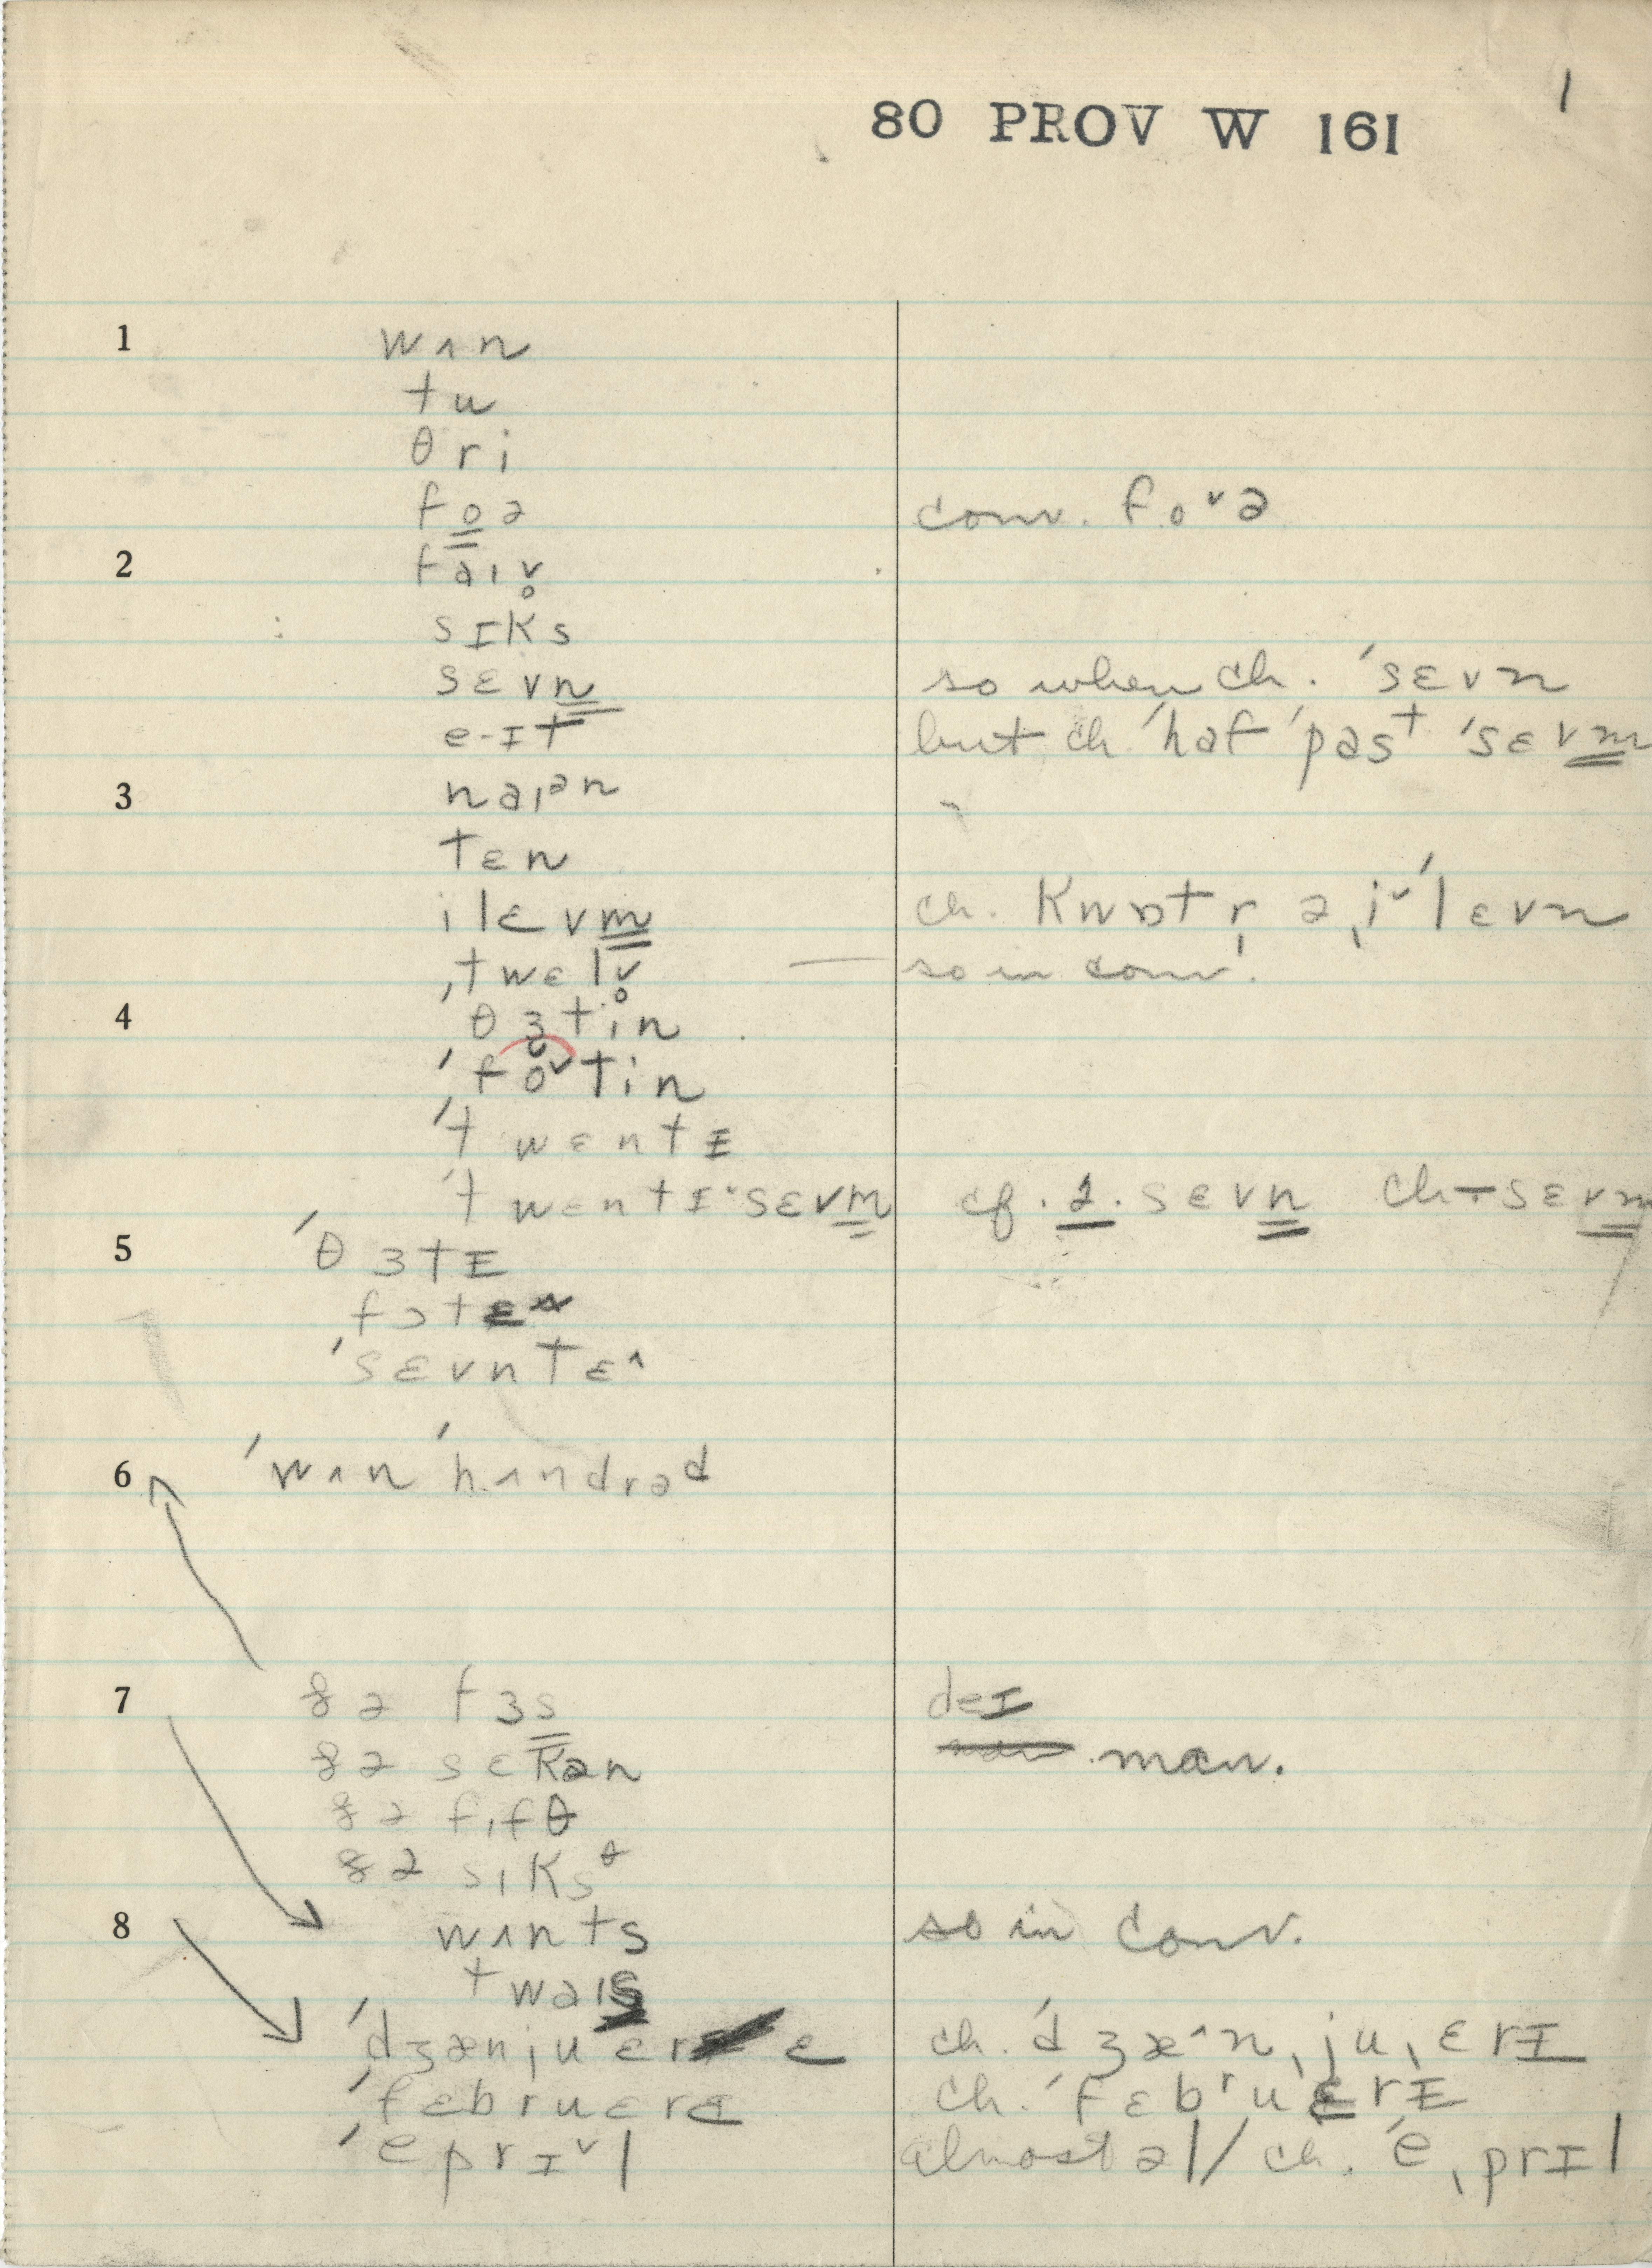 1
80 PROV W 161
1 wʌn
tu
θri
foə conv. fo˅ə
2 faɪv̥
sɪks
sɛvn so when ch. ˈsɛvn
e-ɪt but ch ˈhaf ˈpasᵗ ˈsɛvm
3 naɪᵊn
tɛn
ilɛvm ch. kwɒtr̩ ə ˌi˅ˈlɛvn
ˌtwɛlv̥ so in conv.
4 θɜtin
ˈfo˅tin
ˈtwɛntɪ
ˈtwɛntɪˈsɛvm cf. 2. sɛvn ch-sɛvm
5 ˈθɜtɪ
fɔtɛ^
ˈsɛvntɛ^
6 ˈwʌn ˈhʌndrəd
7 ðə fɜs deɪ
ðə sɛkən man.
ðə fɪfθ
ðə sɪksᶿ
8 wʌnts so in conv.
twaɪs
ˈdʒænjuɛrɛ ch. ˈdʒæ^nˌjuˌɛrɪ
ˈfɛbruɛrɛ ch. ˈfɛbʳuɛrɪ
ˈeprɪ˅l almost əl/ ch. ˈeˌprɪl